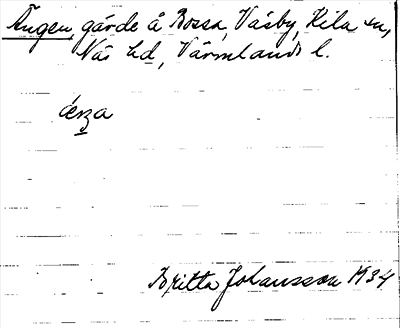 Ängen, gärde å Bossa, Väsby, Kila sn,
Näs hd, Värmlands l.
Britta Johansson 1934